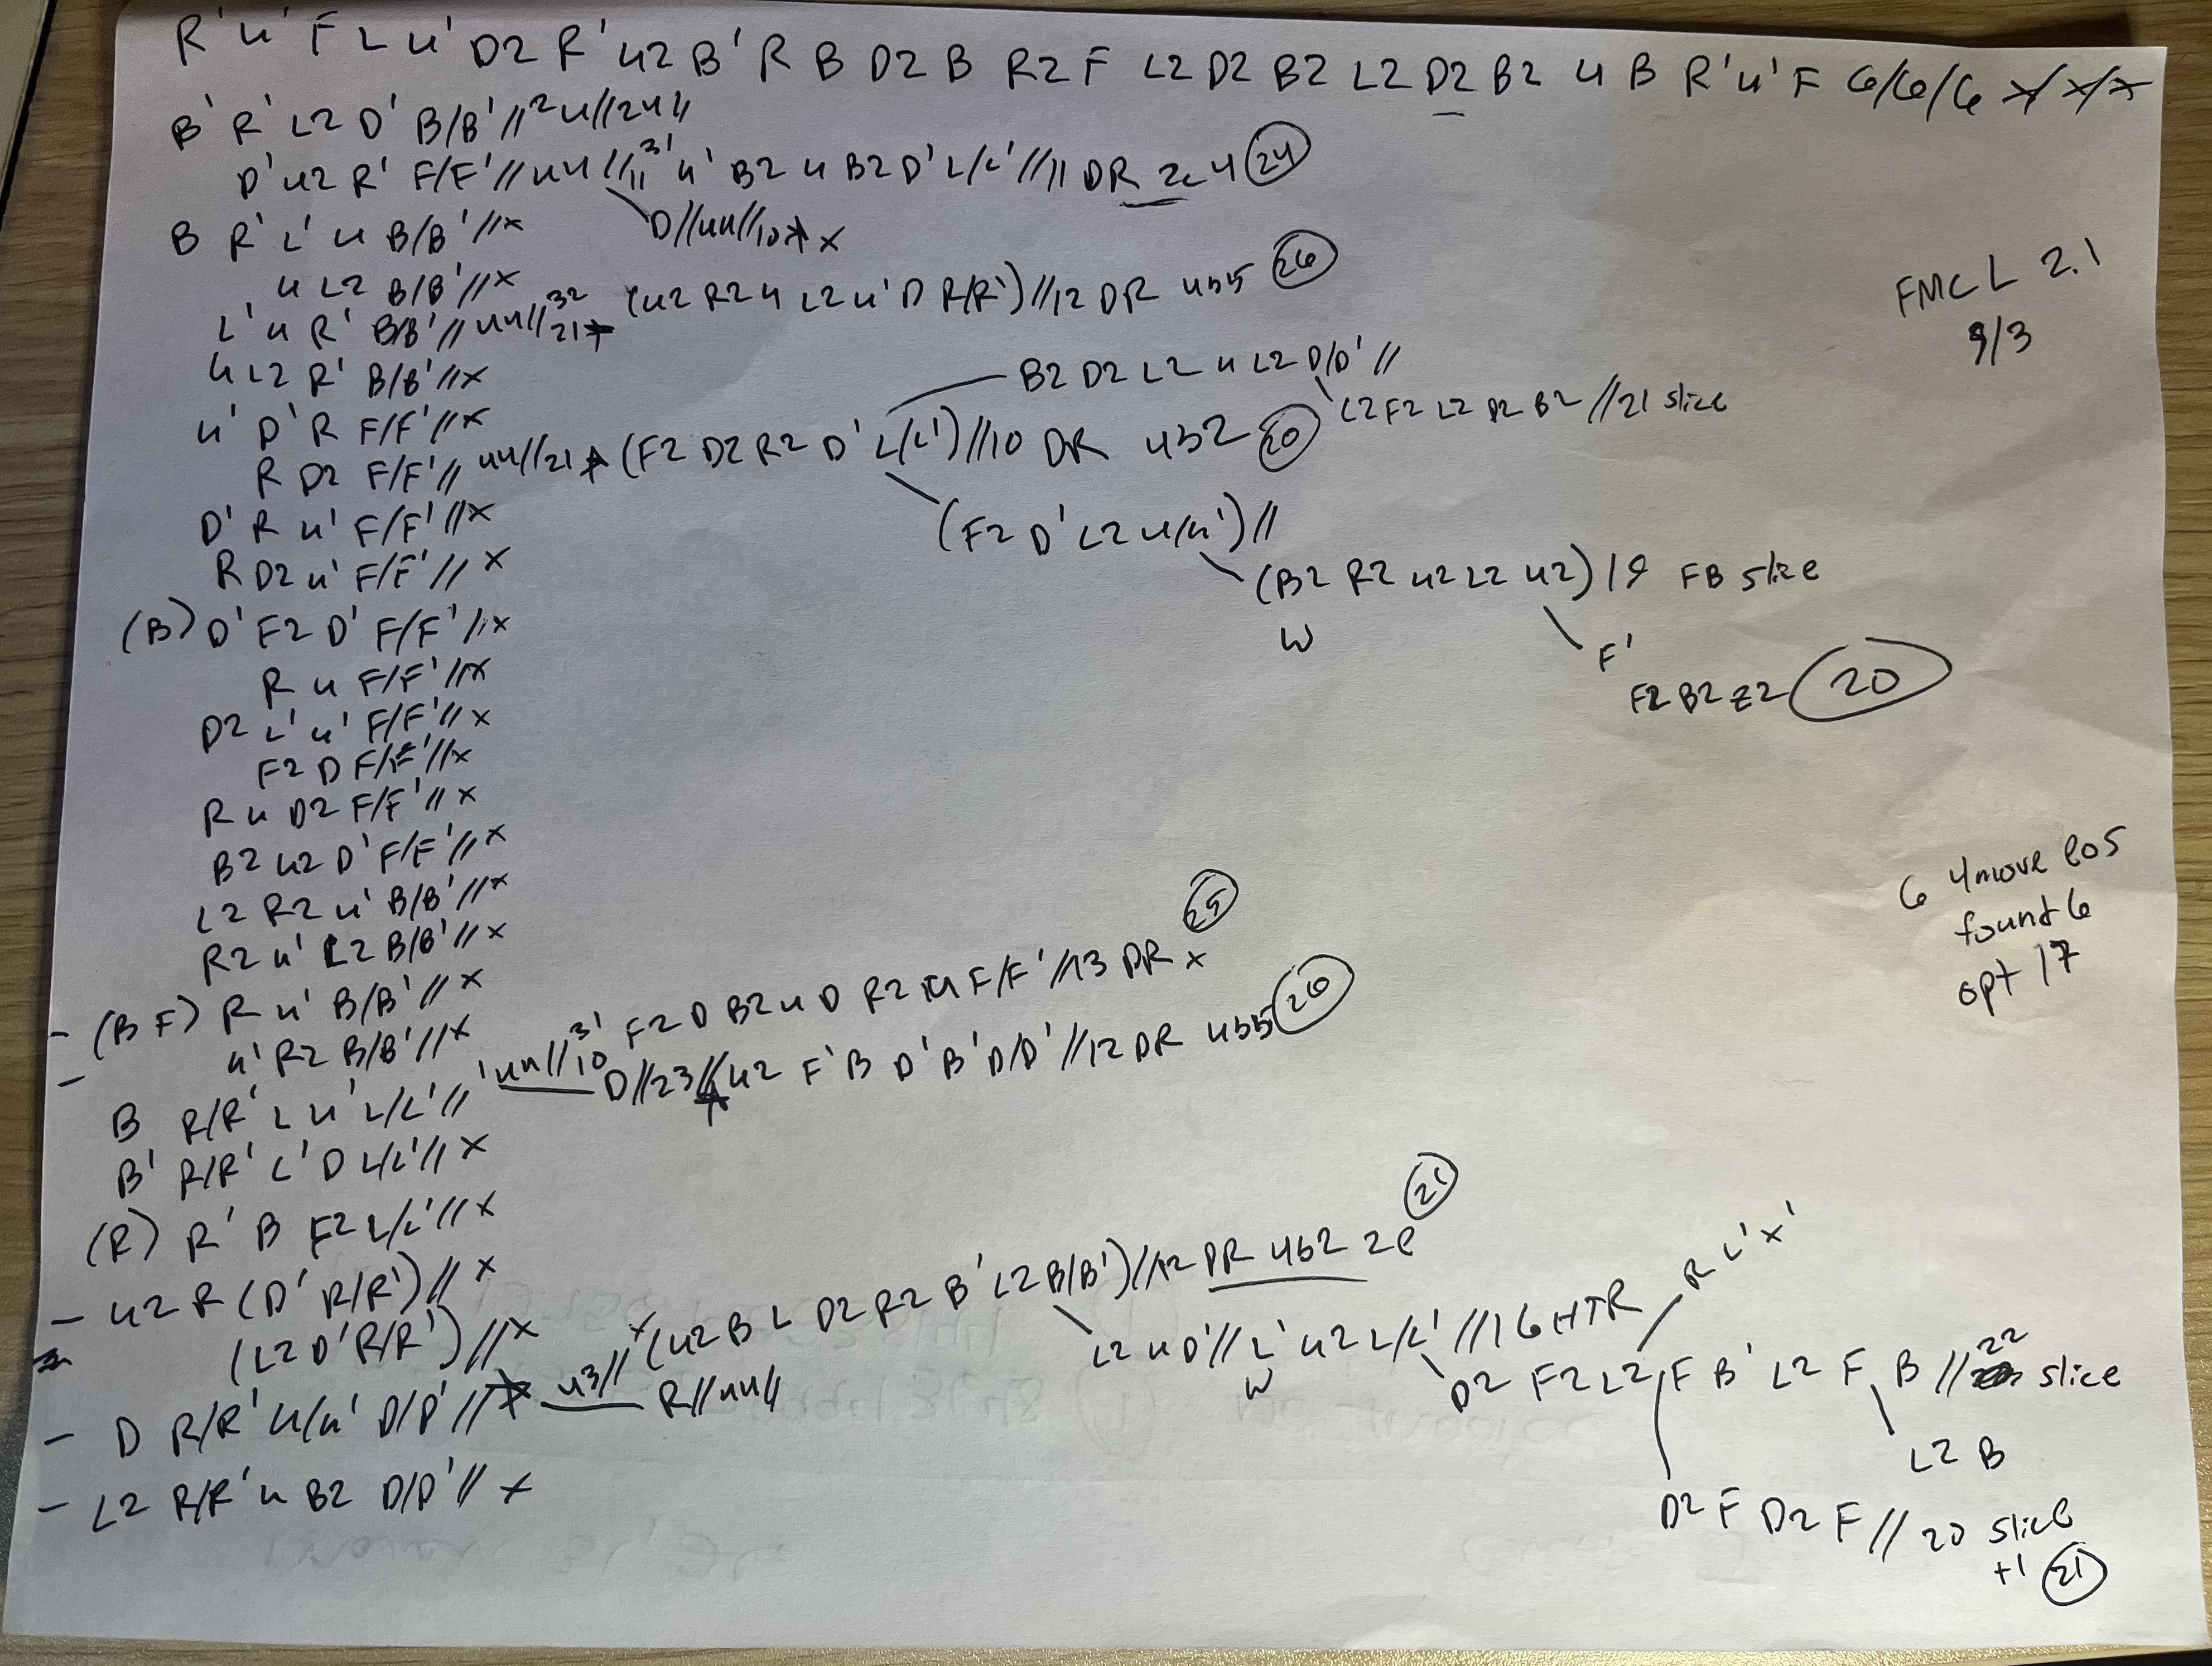 R' U' F L U' D2 R' U2 B' R B D2 B R2 F L2 D2 B2 L2 D2 B2 U B R' U' F 6/6/6 x/x/x
B' R' L2 D' B/B' // 2U // 24 //
D' U2 R' F/F' // UU // 3' 11 U' B2 U B2 D' L/L' // 11 DR 2c4 (24)
D // UU // 10 x
B R' L' U B/B' // x
U L2 B/B' // x
L' U R' B/B' // UU // 32 21 (U2 R2 U L2 U' D R/R') // 12 DR 4b5 (26)
FMC L 2.1
9/3
U L2 R' B/B' // x
B2 D2 L2 U L2 D/D' //
L2 F2 L2 D2 B2 // 21 slice
U' D' R F/F' // x
R D2 F/F' // UU // 21 (F2 D2 R2 D' L/L') // 10 DR 4b2 (20)
D' R U' F/F' // x
(F2 D' L2 U/U') //
R D2 U' F/F' // x
(B2 R2 U2 L2 U2) 19 FB slice
W
(B) D' F2 D' F/F' // x
F'
F2 B2 E2 (20)
R U F/F' // x
D2 L' U' F/F' // x
F2 D F/F' // x
R U D2 F/F' // x
B2 U2 D' F/F' // x
L2 R2 U' B/B' // x
R2 U' L2 B/B' // x
6 4move eos
found 6
opt 17
- (B F) R U' B/B' // x
- U' R2 B/B' // x
B R/R' L U' L/L' // UU // 3' 10 F2 D B2 U D R2 U F/F' // 13 DR x (25)
D // 23 // U2 F' B D' B' D/D' // 12 DR 4b5 (26)
B' R/R' L' D L/L' // x
(R) R' B F2 L/L' // x
- U2 R (D' R/R') // x
(L2 D' R/R') // x
- D R/R' U/U' D/D' // x U3 // (U2 B L D2 R2 B' L2 B/B') // 12 DR 4b2 2e (21)
R // UU //
L2 U D' // L' U2 L/L' // 16 HTR
W
R L' x'
D2 F2 L2 F B' L2 F B // 22 slice
L2 B
D2 F D2 F // 20 slice
+1 (21)
- L2 R/R' U B2 D/D' // x